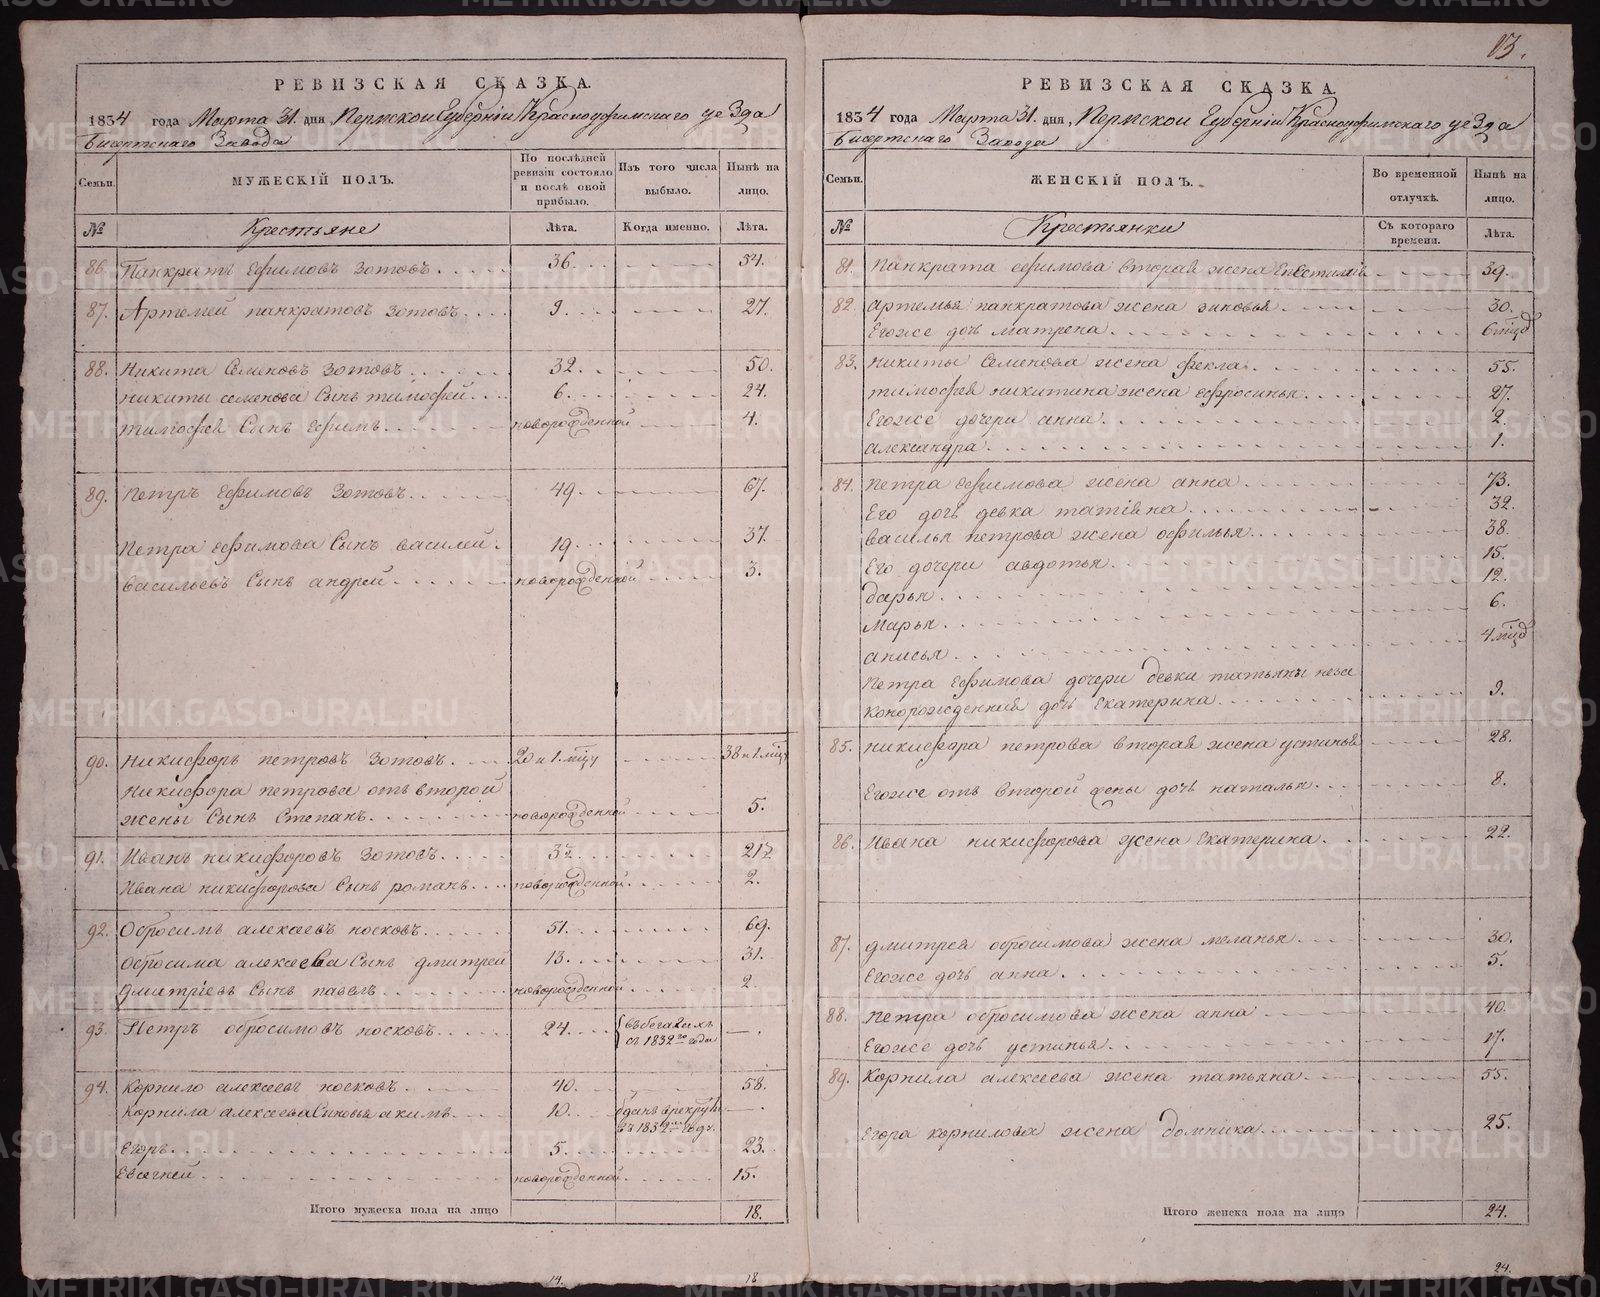 13.
РЕВИЗСКАЯ СКАЗКА.
1834 года Марта 31. дня, Пермской Губерніи Красноуфимскаго уезда
Бисертскаго Завода
Семьи.
МУЖЕСКІЙ ПОЛЪ.
По послѣдней ревизіи состояло и послѣ оной прибыло.
Изъ того числа выбыло.
Нынѣ на лицо.
№
Крестьяне
Лѣта.
Когда именно.
Лѣта.
86. Панкратъ Ефимовъ Зотовъ 36. 54.
87. Артемей панкратовъ Зотовъ 9. 27.
88. Никита Семеновъ Зотовъ 32. 50.
никиты семенова Сынъ тимофей 6. 24.
тимофея Сынъ Ефимъ новорожденной 4.
89. Петръ Ефимовъ Зотовъ 49. 67.
Петра Ефимова Сынъ василей 19. 37.
васильевъ Сынъ андрей новорожденной 3.
90. Никифоръ петровъ Зотовъ 20 и 1. мцу 38 и 1. мцу
Никифора петрова отъ второй
жены Сынъ Степанъ новорожденной 5.
91. Иванъ никифоровъ Зотовъ 3½ 21½
Ивана никифорова Сынъ романъ новорожденной 2.
92. Обросимъ алексеевъ носковъ 51. 69.
обросима алексеева Сынъ дмитрей 13. 31.
дмитріевъ Сынъ павелъ новорожденной 2.
93. Петръ обросимовъ носковъ 24. въ бегахъ съ 1832го года —.
94. Корнило алексеевъ носковъ 40. 58.
Корнила алексеева Сыновья акимъ 10. отданъ в рекруты въ 1832мъ году. —.
Егоръ 5. 23.
Евсегней новорожденной 15.
Итого мужеска пола на лицо 18.
14. 18
РЕВИЗСКАЯ СКАЗКА.
1834 года Марта 31. дня, Пермской Губерніи Красноуфимскаго уезда
Бисертскаго Завода
Семьи.
ЖЕНСКІЙ ПОЛЪ.
Во временной отлучкѣ.
Нынѣ на лицо.
№
Крестьянки
Съ котораго времени.
Лѣта.
81. Панкрата Ефимова вторая жена 39.
82. артемья панкратова жена зиновья 30.
Егоже дочь матрена 6 мцъ
83. Никиты Семенова жена фекла 55.
тимофея никитина жена ефросинья 27.
Егоже дочери анна 2.
александра 1.
84. Петра Ефимова жена анна 73.
Его дочь девка татіяна 32.
василья петрова жена офимья 38.
Его дочери авдотья 15.
дарья 12.
Марья 6.
анисья 4 мцъ
Петра Ефимова дочери девки татьяны неза
конорожденная дочь Екатерина 9.
85. никифора петрова вторая жена устинья 28.
Егоже отъ второй жены дочь наталья 8.
86. Ивана никифорова жена Екатерина 22.
87. дмитрея обросимова жена меланья 30.
Егоже дочь анна 5.
88. Петра обросимова жена анна 40.
Егоже дочь устинья 17.
89. Корнила алексеева жена татьяна 55.
Егора корнилова жена домника 25.
Итого женска пола на лицо 24.
24.
METRIKI.GASO-URAL.RU